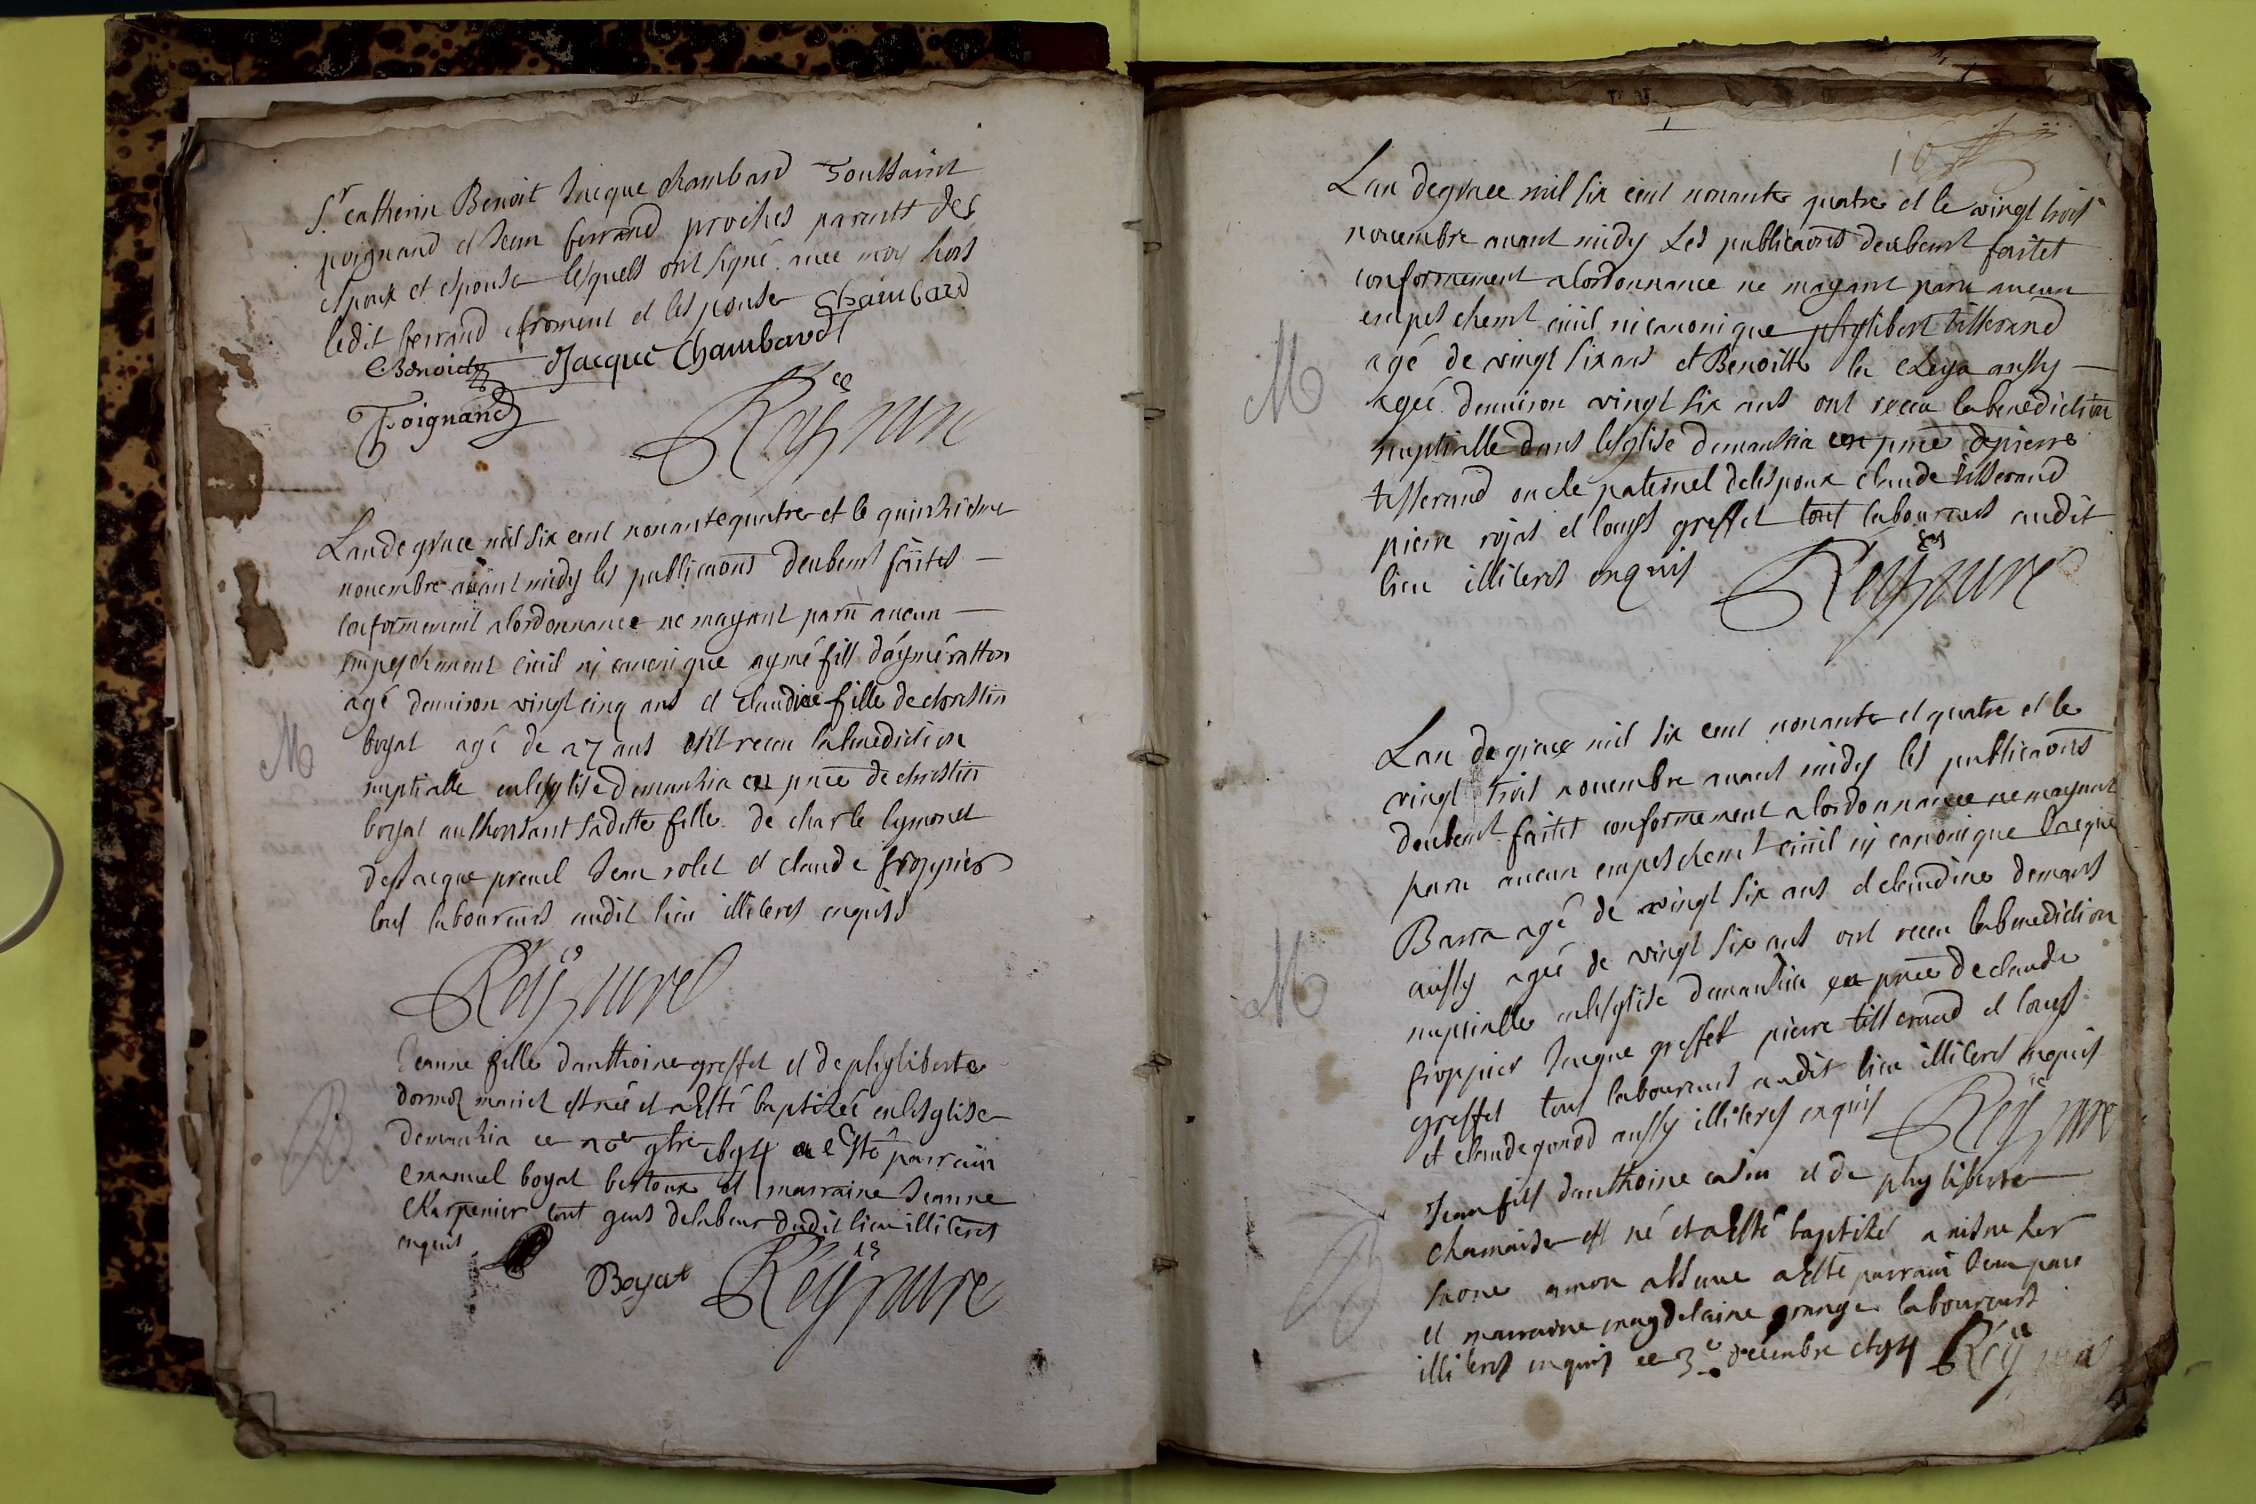 Sr catherin Benoit Jacque chambard Toussaint
poignand et Jean ferrand proches parentt des
espoux et espouse lesquels ont signé avec moy hors
ledit ferrand froment et lespouse Chambard
Benoict Jacque Chambard
Poignand Rey curé
Lan de grace mil six cent nonante quatre et le quinsiesme
novembre avant midy les publicaons deubemt faites
conformement a lordonnance ne mayant paru aucun
empeschement civil ny canonique aymé fill d'aymé ratton
agé denviron vingt cinq ans et claudine fille de christin
boyat agé de 27 ans ont receu la benediction
nuptialle en lesglise de mansia en pnce de christin
boyat authorisant sa ditte fille de charle
de Jacque Jean rolet et claude froppier
tous laboureurs audit lieu illiteres enquis
Rey curé
Jeanne fille d'anthoine greffet et de phyliberte
est née et a esté baptizée en lesglise
de mansia ce 20e 9bre a esté parrain
emanuel boyat et marraine Jeanne
Charpenier tout gens de labeur dudit lieu illiteres
enquis
Boyat Rey curé
16
Lan de grace mil six cent nonante quatre et le vingt trois
novembre avant midy Les publicaons deubemt faites
conformement a lordonnance ne mayant paru aucun
empeschemt civil ni canonique phylibert tisserand
agé de vingt six ans et Benoitte aussy
agée denviron vingt six ans ont receu la benediction
nuptialle dans lesglise de mansia en pnce de pierre
tisserand oncle paternel de lespoux claude tisserand
pierre et louys greffet tout laboureurs audit
lieu illiteres enquis Rey curé
Lan de grace mil six cent nonante et quatre et le
vingt trois novembre avant midy les publicaons
deubemt faites conformement a lordonnance ne mayant
paru aucun empeschemt civil ny canonique Jacque
Barra agé de vingt six ans et claudine
aussy agée de vingt six ans ont receu la benediction
nuptialle en lesglise de mansia en pnce de claude
froppier Jacque greffet pierre tisserand et louys
greffet tous laboureurs audit lieu illiteres enquis
et claude gonod aussy illiteres enquis Rey curé
Jean fils d'anthoine et de phyliberte
est né et a esté baptizé a
saone a mon absence a esté parrain Jean
et marraine magdelaine grange laboureurs
illiteres enquis ce 3e decembre Rey curé
M
M
M
B
B